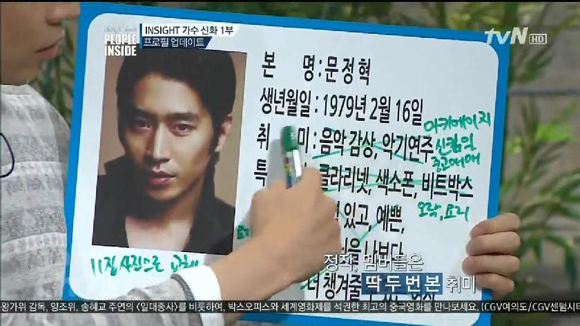 PEOPLE INSIDE
INSIGHT 가수 신화 1부
프로필 업데이트
tvN HD
본 명 : 문정혁
생년월일 : 1979년 2월 16일
아키에이지
취 미 : 음악 감상, 악기연주
신팀일
중고매매
특 클라리넷, 색소폰, 비트박스
오락, 요리
있고, 예쁜,
나보다
더 챙겨주
11집 사진으로 교체
정작, 멤버들은
딱 두 번 본 취미
왕가위 감독, 양조위, 송혜교 주연의 <일대종사>를 비롯하여, 박스오피스와 세계영화제를 석권한 최고의 중국영화를 만나보세요. (CGV여의도/CGV센텀시티